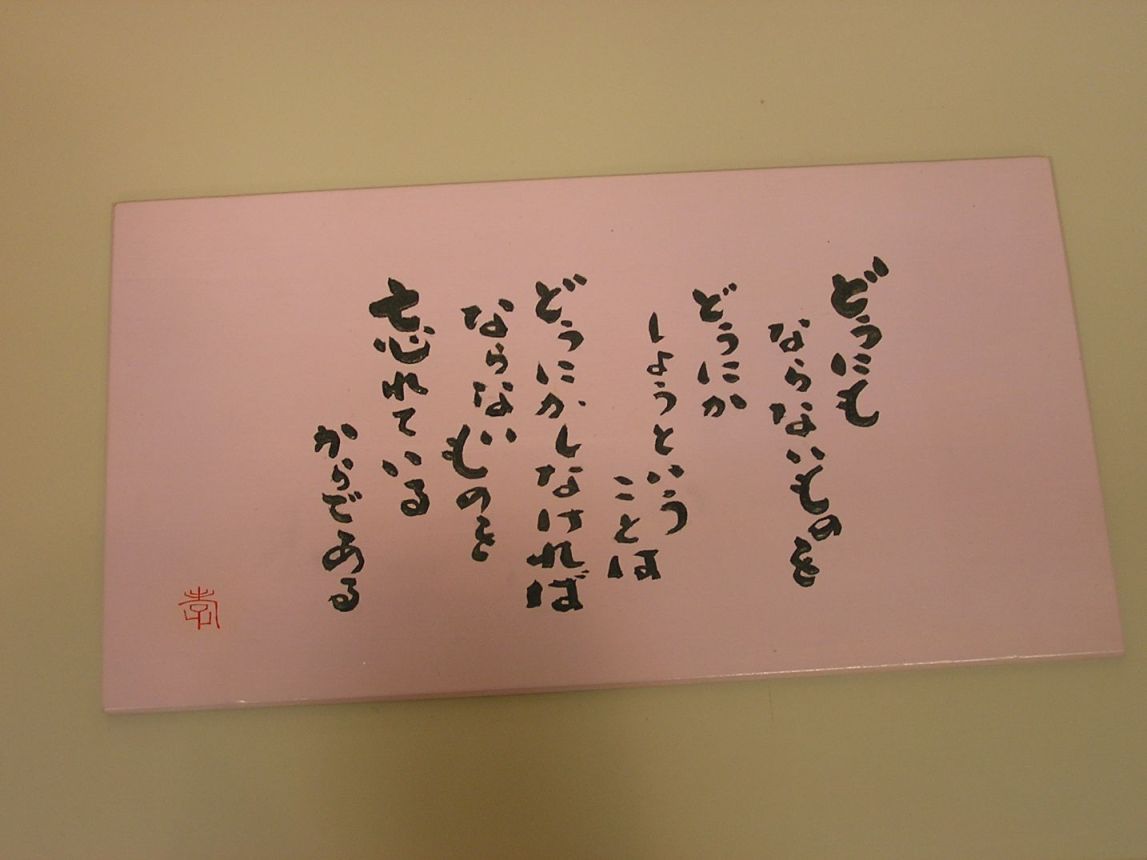 どうにも
ならないものを
どうにか
しようという
ことは
どうにかしなければ
ならないものを
忘れている
からである